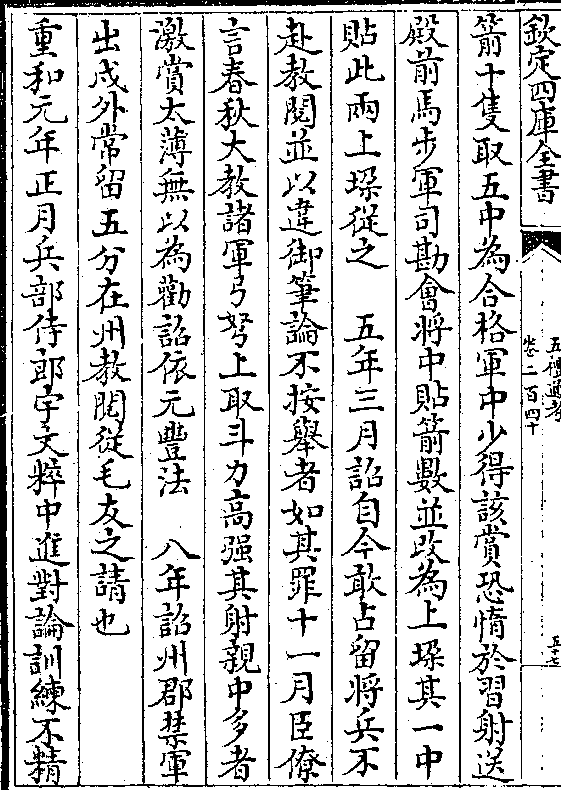 欽定四庫全書
五禮通考
卷二百四十
五十七
箭十隻取五中為合格軍中少得該賞恐惰於習射送
殿前馬步軍司勘會將中貼箭數並改為上垜其一中
貼此兩上垜從之　五年三月詔自今敢占留將兵不
赴教閱並以違御筆論不按舉者如其罪十一月臣僚
言春秋大教諸軍弓弩上取斗力高强其射親中多者
激賞太薄無以為勸詔依元豐法　八年詔州郡禁軍
出戍外常留五分在州教閱從毛友之請也
重和元年正月兵部侍郎宇文粹中進對論訓練不精